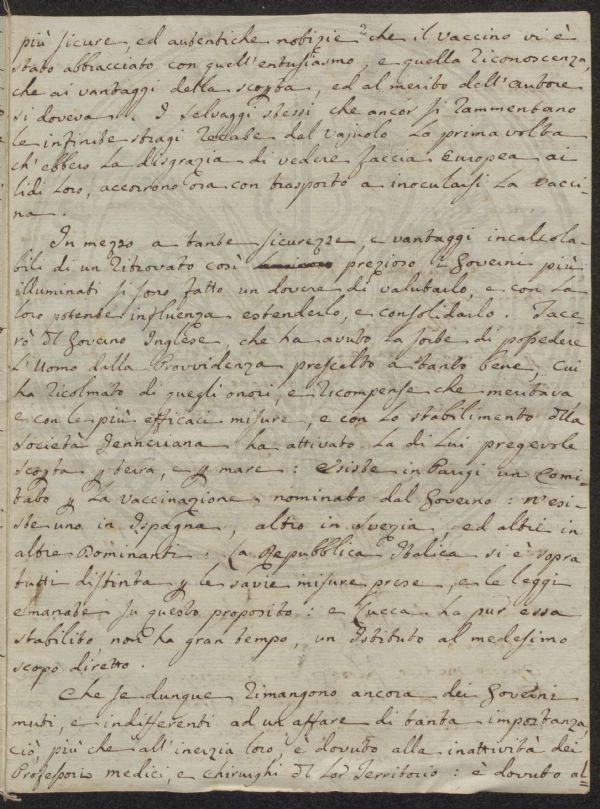 più sicure, ed autentiche notizie che il Vaccino vi è
stato abbracciato con quell'entusiasmo, e quella riconoscenza,
che ai vantaggi della scopta, ed al merito dell'autore
si doveva.. I selvaggi stessi che ancor si rammentano
le infinite stragi recate dal vajuolo la prima volta
ch'ebbero la disgrazia di vedere faccia Europea ai
lidi loro, accorrono ora con trasporto a inocularsi la vacci-
na.
In mezzo a tante sicurezze, e vantaggi incalcola-
bili di un ritrovato così prezioso i Governi più
illuminati si sono fatto un dovere di valutarlo, e con la
loro potente influenza estenderlo, e consolidarlo. Tace-
rò dl Governo Inglese, che ha avuto la sorte di possedere
l'Uomo dalla Provvidenza prescelto a tanto bene, cui
ha ricolmato di quegli onori, e ricompense che meritava
e con le più efficaci misure, e con lo stabilimento dlla
società Jenneriana ha attivato la di lui pregevole
scopta p terra, e p mare: esiste in Parigi un Comi-
tato p la vaccinazione nominato dal Governo: n'esi-
ste uno in Ispagna, altro in Svezia, ed altri in
altre Dominanti. La Repubblica Italica si è sopra
tutti distinta p le savie misure prese, e le leggi
emanate su questo proposito: e Lucca ha pur essa
stabilito non ha gran tempo, un Istituto al medesimo
scopo diretto.
Che se dunque rimangono ancora dei Governi
muti, e indifferenti ad un affare di tanta importanza,
ciò, più che all'inerzia loro, è dovuto alla inattività dei
Professori medici, e chirurghi dl lor Territorio: è dovuto al=